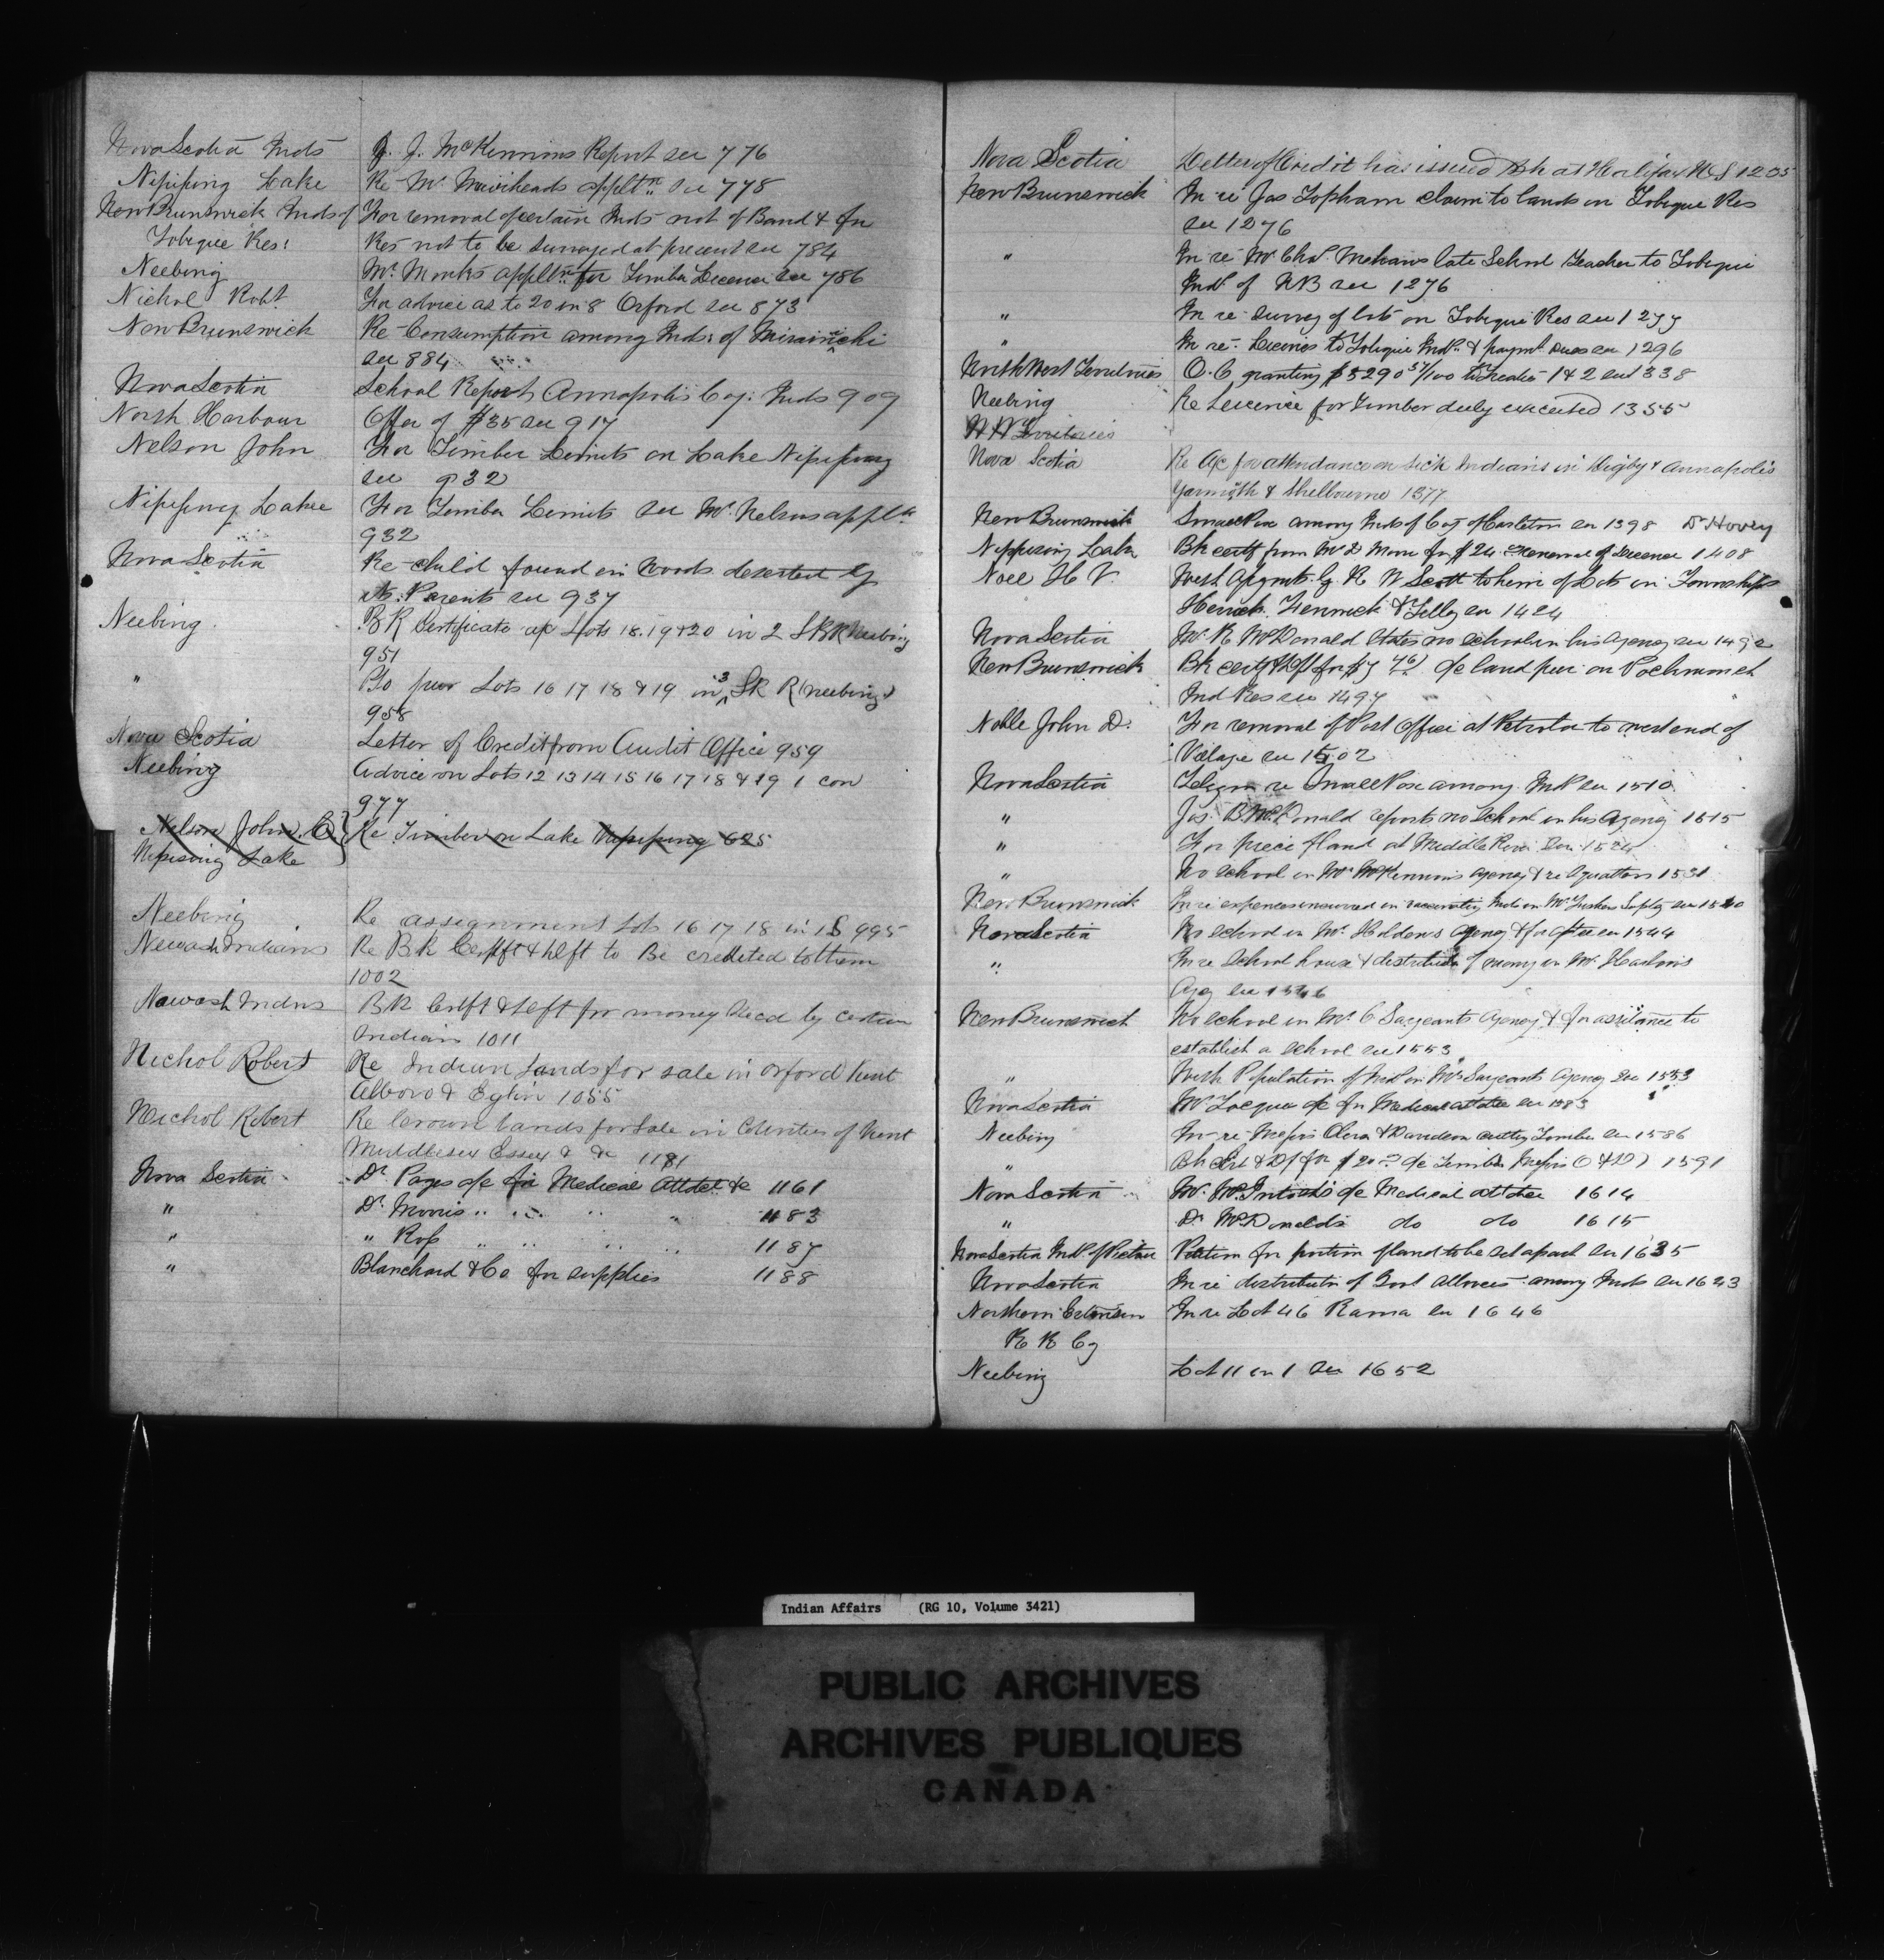 Nova Scotia Inds J. J. McKinnons Report see 776
Nipissing Lake Re Mr Muirheads applt'n see 778
New Brunswick Inds of For removal of certain Inds not of Band & for
Tobique Res: Res not to be surveyed at present see 784
Neebing Mr Monks applt'n for Timber Licence see 786
Nichol Robt For advice as to 20 in 8 Orford see 873
New Brunswick Re Consumption among Inds: of Miramichi
see 884
Nova Scotia School Report Annapolis Coy: Inds 909
North Harbour Offer of $35 see 917
Nelson John For Timber Limits on Lake Nipissing
see 932
Nipissing Lake For Timber Limits see Mr Nelsons applt'n
932
Nova Scotia Re child found in Woods deserted by
its Parents see 937
Neebing BK Certificate a/c Lots 18.19 & 20 in 2 SKR Neebing
951
" Do pur Lots 16 17 18 & 19 in 3 SK R (Neebing)
958
Nova Scotia Letter of Credit from Audit Office 959
Neebing Advice on Lots 12 13 14 15 16 17 18 & 19 1 con
977
Nelson John C Re Timber on Lake Nipissing 625
Nipissing Lake
Neebing Re assignment Lots 16 17 18 in 1 S 995
Newash Indians Re BK Certft & dft to Be credited to them
1002
Nawash Indns BK Certft & dft for money Recd by certain
Indians 1011
Nichol Robert Re Indian Lands for sale in Orford Kent
Alboro & Eglin 1055
Nichol Robert Re Crown lands for Sale in Counties of Kent
Middlesex Essex & &c 1181
Nova Scotia Dr Pages a/c for Medical Attdce &c 1161
" Dr Morris " " " " 1183
" " Ross " " " " 1187
" Blanchard & Co for supplies 1188
Nova Scotia Letter of Credit has issued Bk at Halifax N&S 1205
New Brunswick In re Jas Topham claim to lands in Tobique Res
see 1276
" In re Mr Chas. Mehans late School Teacher to Tobique
Inds of NB see 1276
" In re Survey of lots on Tobique Res see 1277
" In re Licences to Tobique Inds & paymt dues see 1296
North West Territories O.C granting $5290 51/100 to Treaties 1 & 2 see 1338
Neebing Re Licence for Timber duly executed 1355
N W Territories
Nova Scotia Re A/c for attendance on sick Indians in Digby & Annapolis
Yarmoth & Shelbourne 1377
New Brunswick Small Pox among Inds of Coy of Carleton see 1398 Dr Hovey
Nippising Lake Bk certf from Mr D Moore for $24 Renewal of Licence 1408
Noel H V. Wish Asgmts by R W Scott to him of Lots in Townships
Herrick Fenwick & Tilley see 1424
Nova Scotia Mr R McDonald States no school in his Agency see 1492
New Brunswick Bk certf & dft for $7 46 a/c land pur on Pockmouch
Ind Res see 1497
Noble John D. For removal of Post Office at Petrolia to west end of
Village see 1502
Nova Scotia Telegm re Small Pox among Inds see 1510
" Jas. B McDonald reports no school in his Agency 1515
" For piece of land at Middle River see 1524
" No school in Mr McKinnons agency & re squatters 1531
New Brunswick In re expences incurred in vaccinating Inds in Mr Fishers Suptcy see 1540
Nova Scotia No school in Mr Holdens agency & for after see 1544
" In re School house & distribution of money in Mr Harlows
Agcy see 1546
New Brunswick No school in Mr C Sargeants Agency & for assistance to
establish a school see 1553
" With Population of Inds in Mr Sargeants Agency see 1553
Nova Scotia a/c for Medical attdce see 1583
Neebing In re Messrs Oliver & Davidson cutting Timber see 1586
" Bk Cert & Df for $20 a/c Timber Messrs O & D) 1591
Nova Scotia Mr McIntosh's a/c Medical attdce 1614
" Dr McDonalds do do 1615
Nova Scotia Inds. of Pictou Petition for portion of land to be set apart see 1635
Nova Scotia In re distributn of Govt allnces among Inds see 1643
Northern Extension In re Lot 46 Rama see 1646
R R Coy
Neebing Lot 11 in 1 see 1652
Indian Affairs (RG 10, Volume 3421)
PUBLIC ARCHIVES
ARCHIVES PUBLIQUES
CANADA